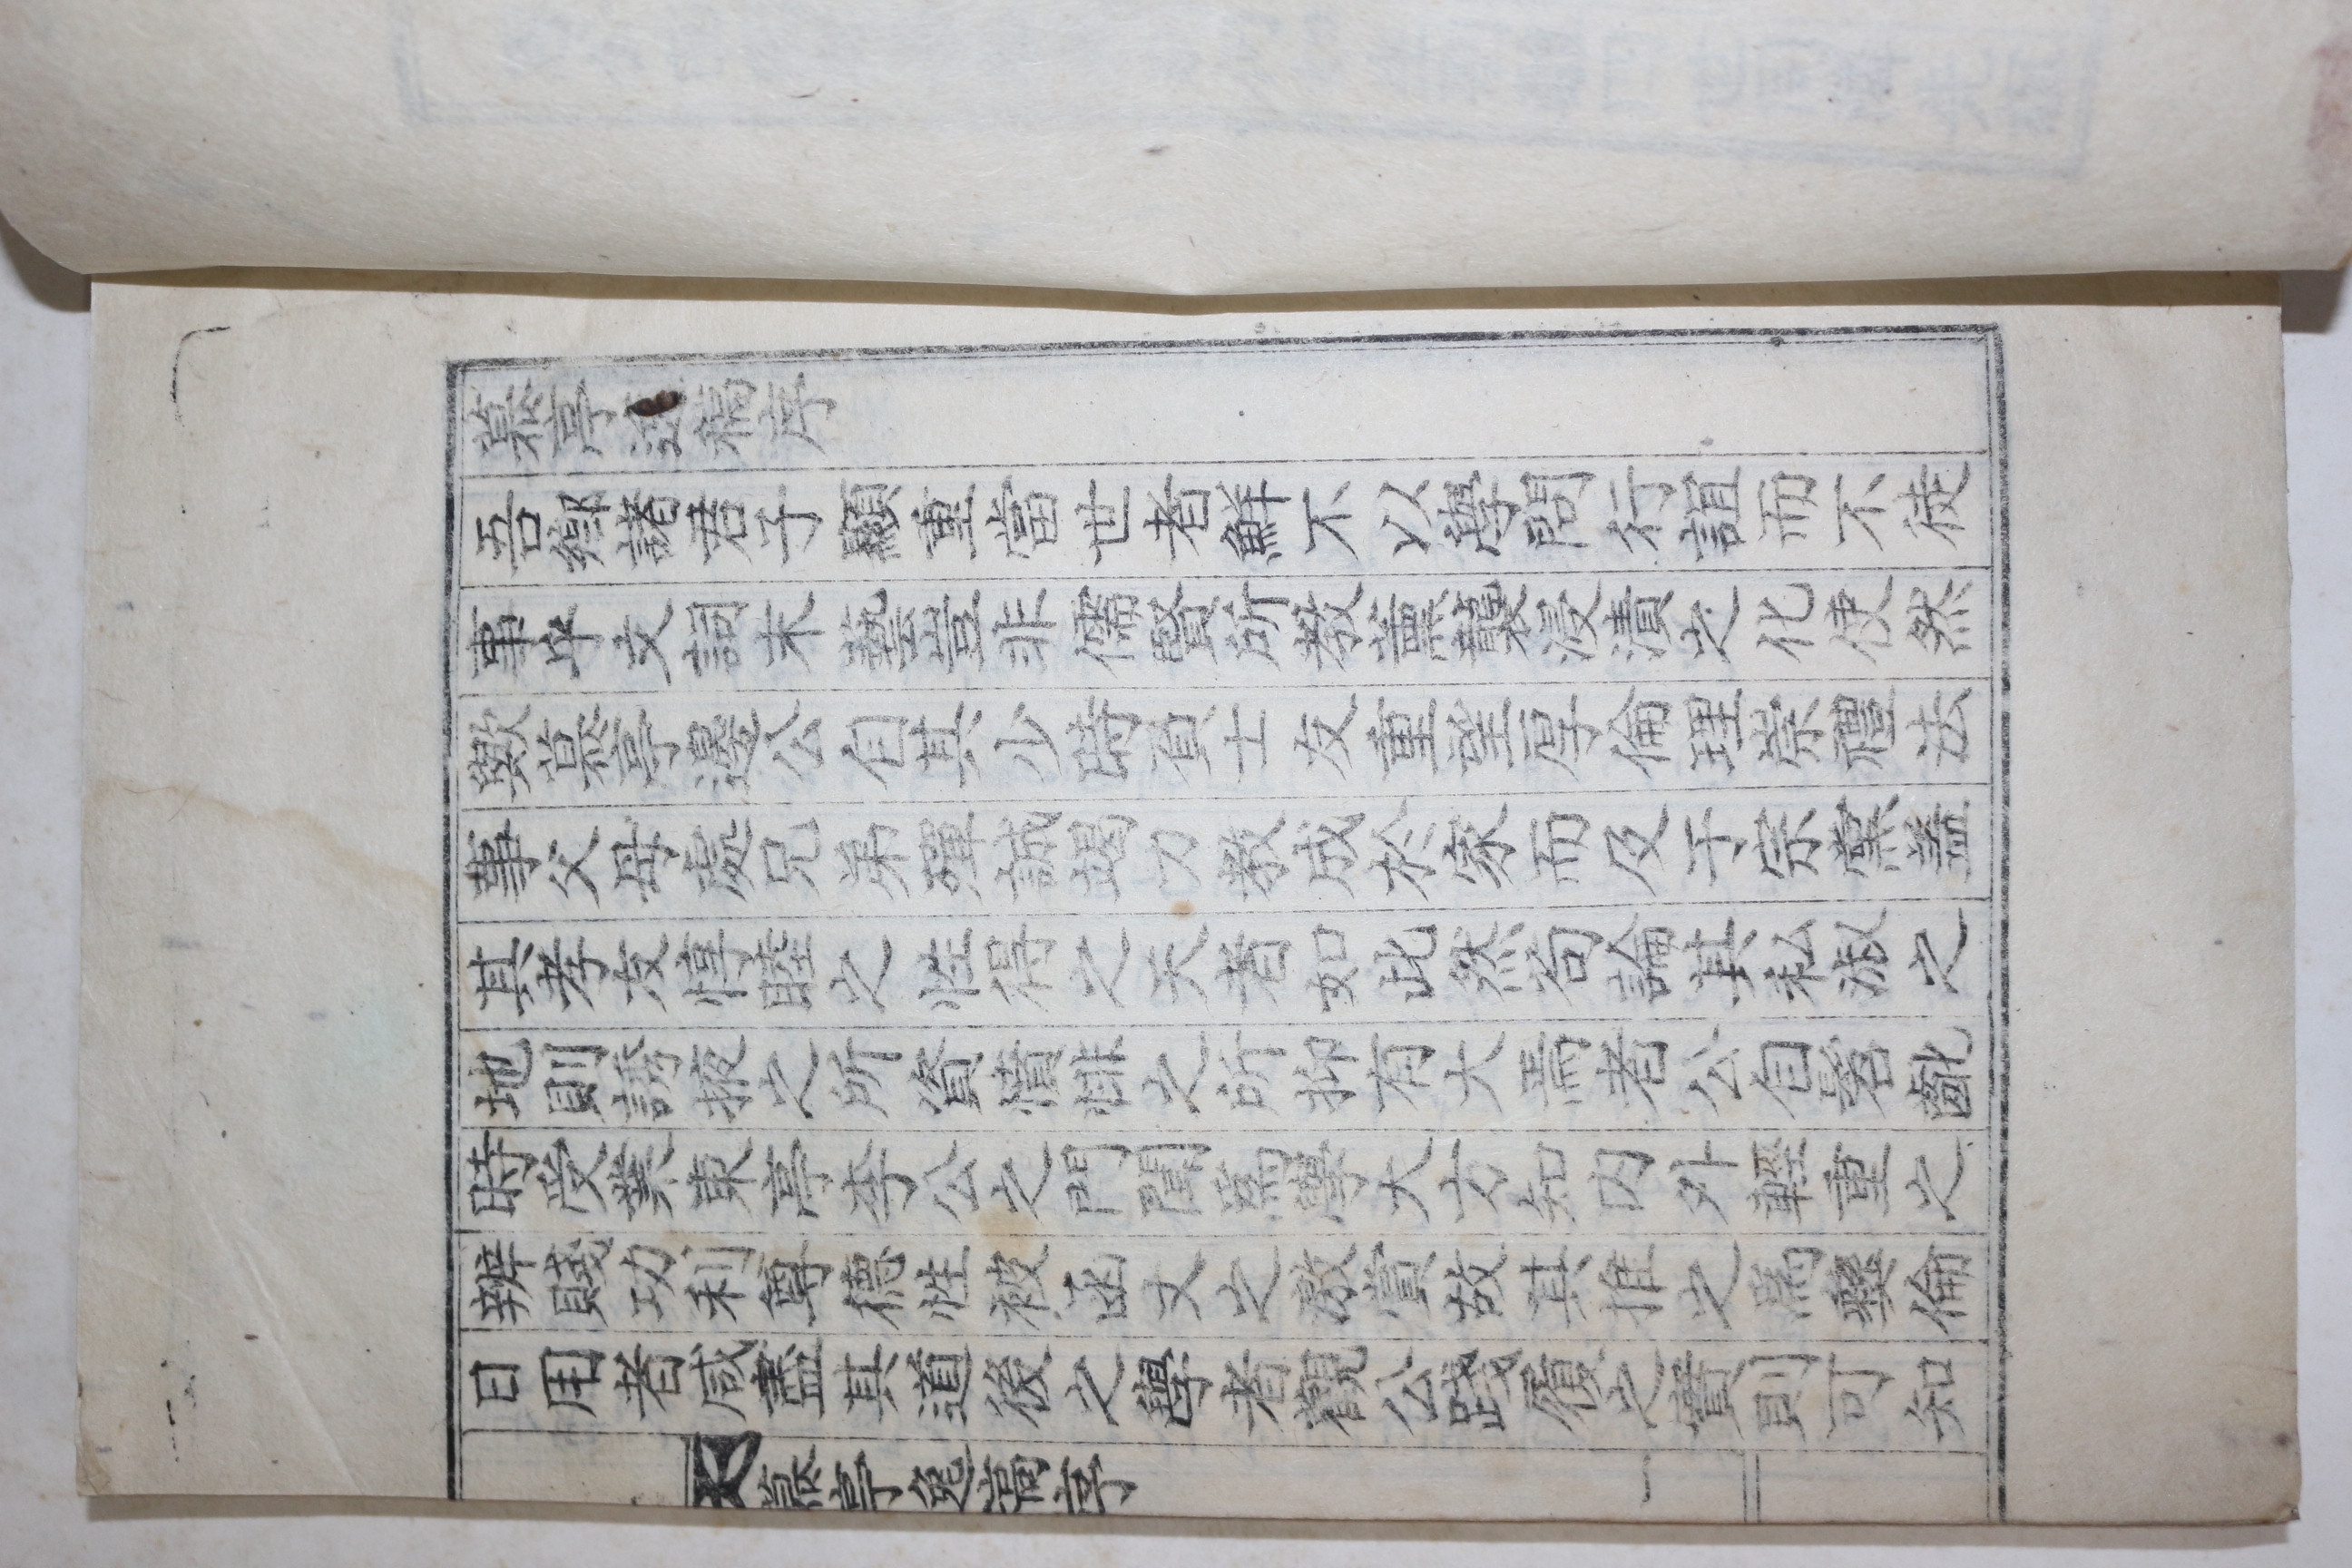 慕亭逸稿序
吾鄉諸君子顯重當世者鮮不以學問行誼而不徒
事乎文詞末藝豈非儒賢所敎薰襲浸漬之化使然
歟慕亭邊公自其少時負士友重望厚倫理崇禮法
事父母處兄弟殫誠竭力敎成於家而及于宗黨蓋
其孝友惇睦之性得之天者如此然苟論其私淑之
地則誘掖之所資憤悱之所抑有大焉者公自髫齔
時受業東亭李公之門聞爲學大方知內外輕重之
辨賤功利尊德性被函丈之激賞故其推之爲彛倫
日用者咸盡其道後之學者觀公踐履之實則可知
慕亭逸稿序 一